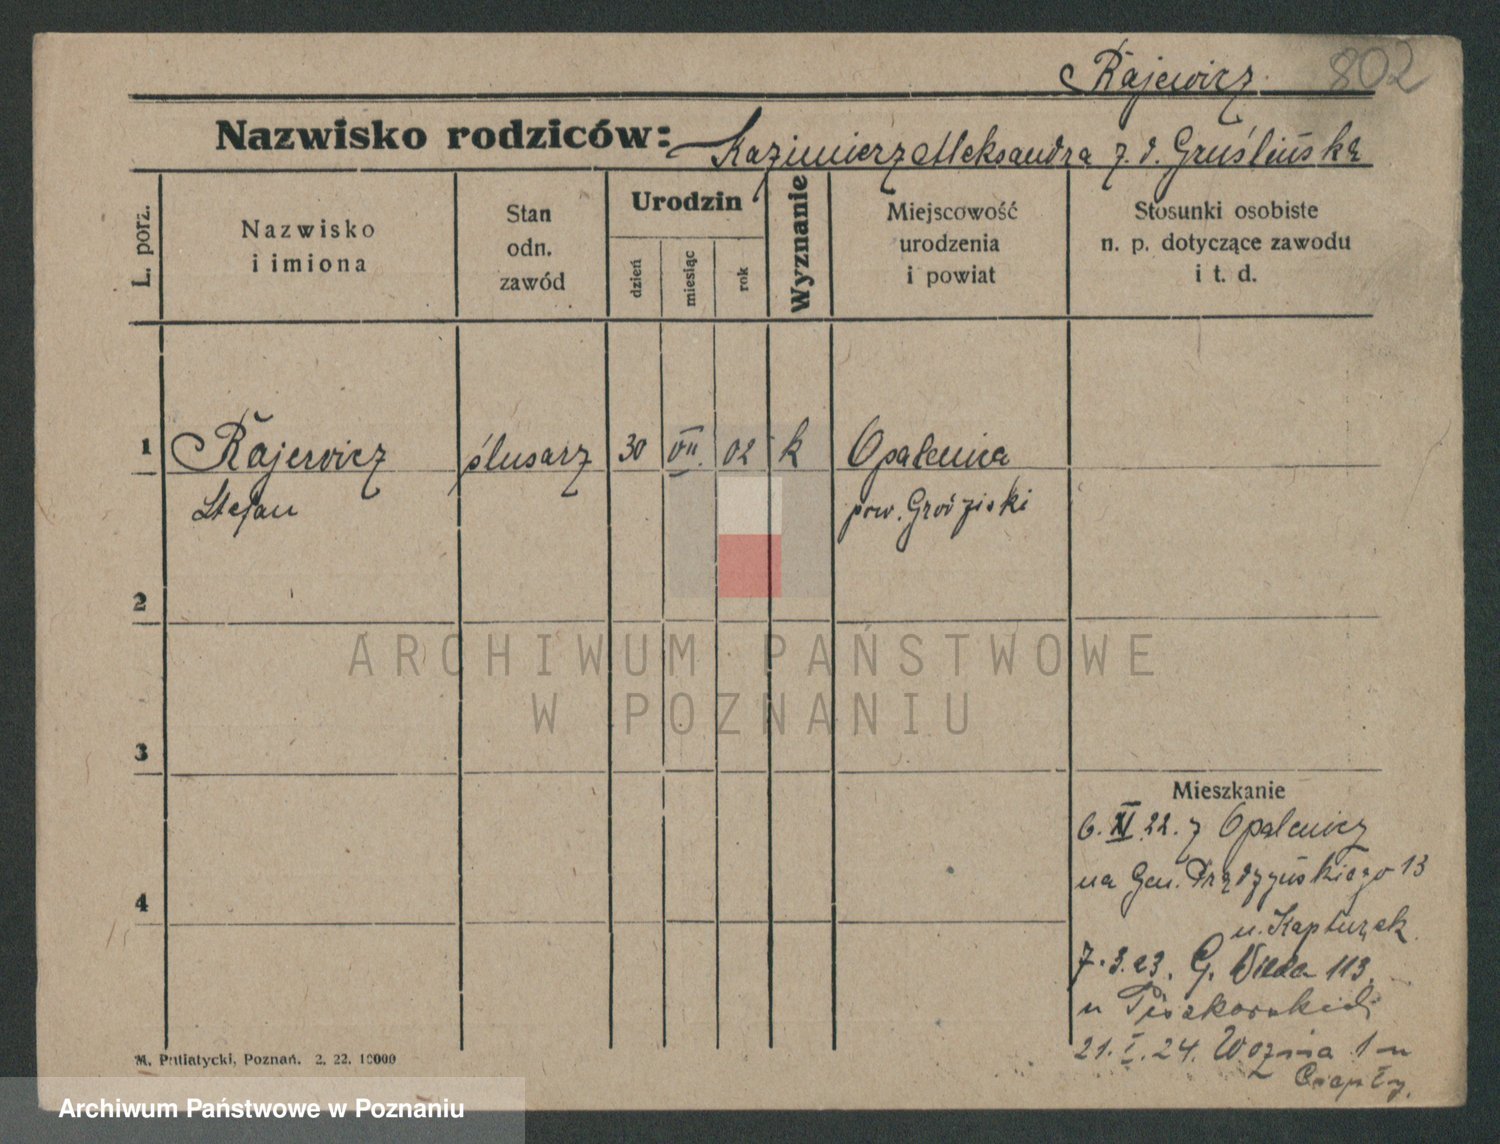 Rajewicz 802
Nazwisko rodziców: Kazimierz Aleksandra z. d. Gruślińska
L. porz.
Nazwisko
i imiona
Stan
odn.
zawód
Urodzin
dzień
miesiąc
rok
Wyznanie
Miejscowość
urodzenia
i powiat
Stosunki osobiste
n. p. dotyczące zawodu
i t. d.
1 Rajewicz ślusarz 30 VII. 02 k Opalenica
Stefan pow. Grodziski
2
3
4
Mieszkanie
6. XI 22. z Opalenicy
na Gen. Prądzyńskiego 13
u. Kapturzak
7. 3. 23. G. Wilda 113.
u
21. I. 24. Woźna 1 u
Czapły.
M. Putiatycki, Poznań. 2. 22. 10000
ARCHIWUM PAŃSTWOWE
W POZNANIU
Archiwum Państwowe w Poznaniu